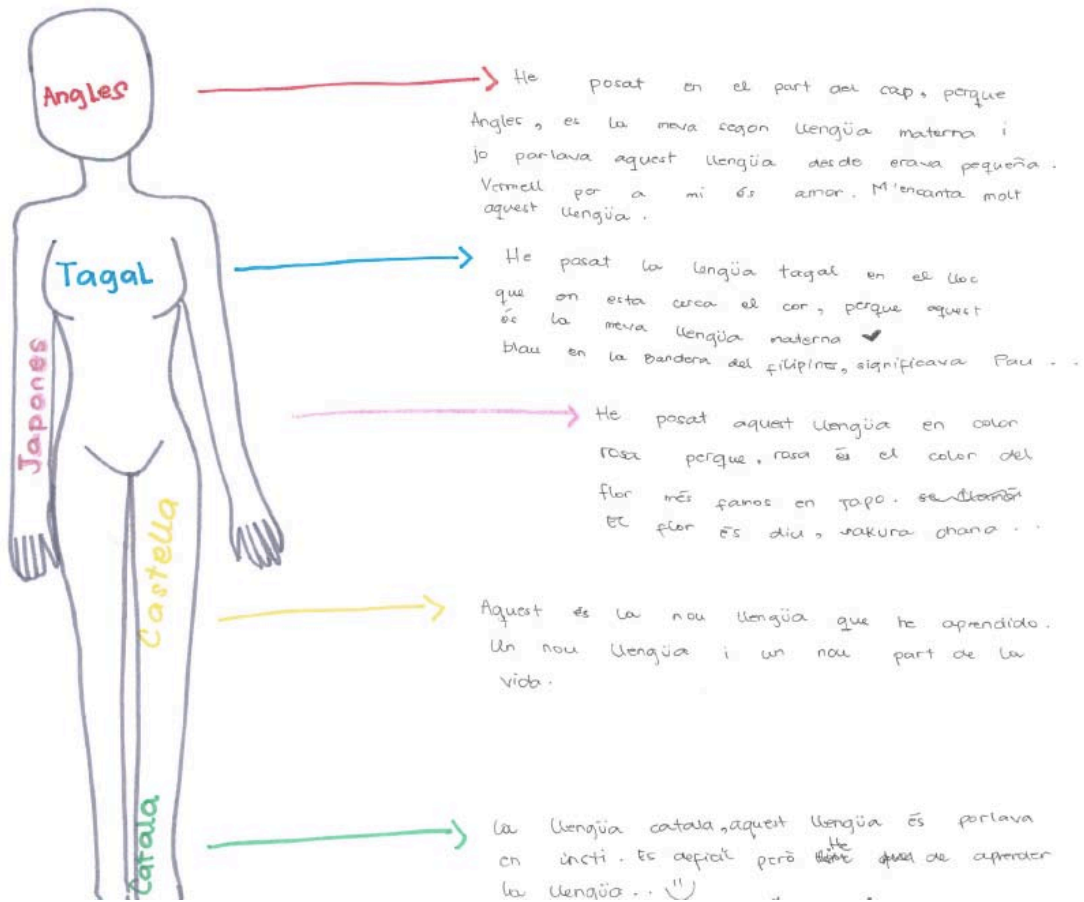 Angles
He posat en el part del cap, perque
Angles, es la meva segon llengüa materna i
jo parlava aquest llengüa desde erava pequeña.
Vermell per a mi és amor. M'encanta molt
aquest llengüa.
Tagal
He posat la lengüa tagal en el lloc
que on esta cerca el cor, perque aquest
és la meva llengüa materna
blau en la Bandera del filipines, significava Pau . .
Japones
He posat aquest llengüa en color
rosa perque, rosa és el color del
flor més famos en Japo.
El flor és diu, sakura ohana . .
Castella
Aquest és la nou llengüa que he aprendido.
Un nou llengüa i un nou part de la
vida.
Catala
La llengüa catala, aquest llengüa és parlava
en insti. Es deficil però He de aprender
la llengüa . .